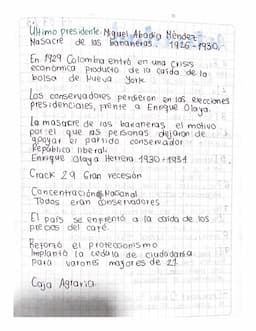 Último presidente: Miguel Abadía Méndez
Masacre de las bananeras. 1926-1930.
En 1929 Colombia entró en una crisis
económica producto de la caída de la
bolsa de Nueva York
Los conservadores perdieron en las elecciones
presidenciales, frente a Enrique Olaya.
La masacre de las bananeras el motivo
por el que las personas dejaron de
apoyar el partido conservador
República liberal.
Enrique Olaya Herrera 1930-1934
Crack 29 Gran recesión
Concentración Nacional
Todos eran conservadores
El país se enfrentó a la caída de los
precios del café.
Reforzó el proteccionismo
Implantó la cédula de ciudadanía
para varones mayores de 21.
Caja Agraria